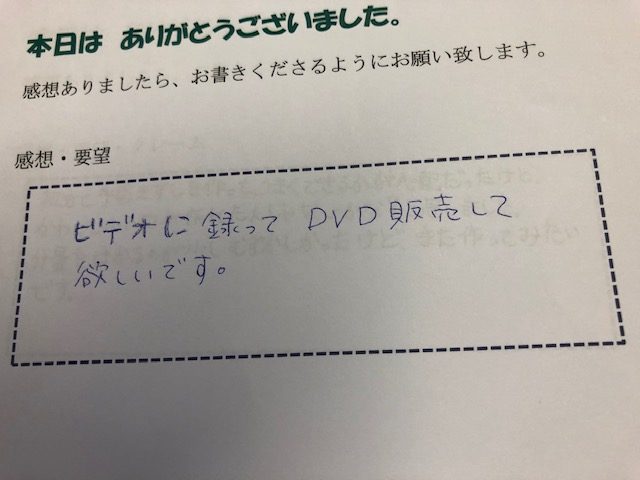 本日は ありがとうございました。
感想ありましたら、お書きくださるようにお願い致します。
感想・要望
ビデオに録って DVD販売して
欲しいです。